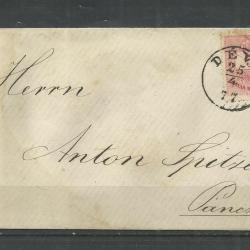 DÉV
25
4
77
Herrn
Anton Spitze
Pánc